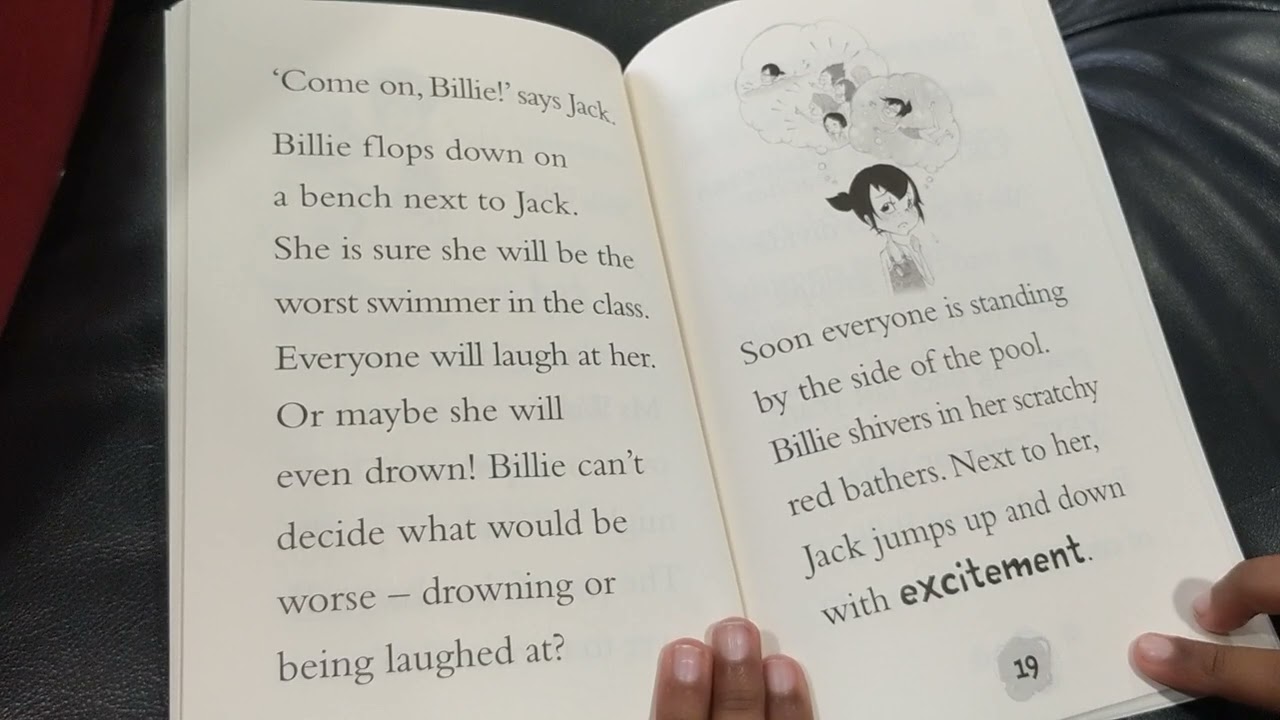 ‘Come on, Billie!’ says Jack.
Billie flops down on
a bench next to Jack.
She is sure she will be the
worst swimmer in the class.
Everyone will laugh at her.
Or maybe she will
even drown! Billie can’t
decide what would be
worse – drowning or
being laughed at?
Soon everyone is standing
by the side of the pool.
Billie shivers in her scratchy
red bathers. Next to her,
Jack jumps up and down
with excitement.
19